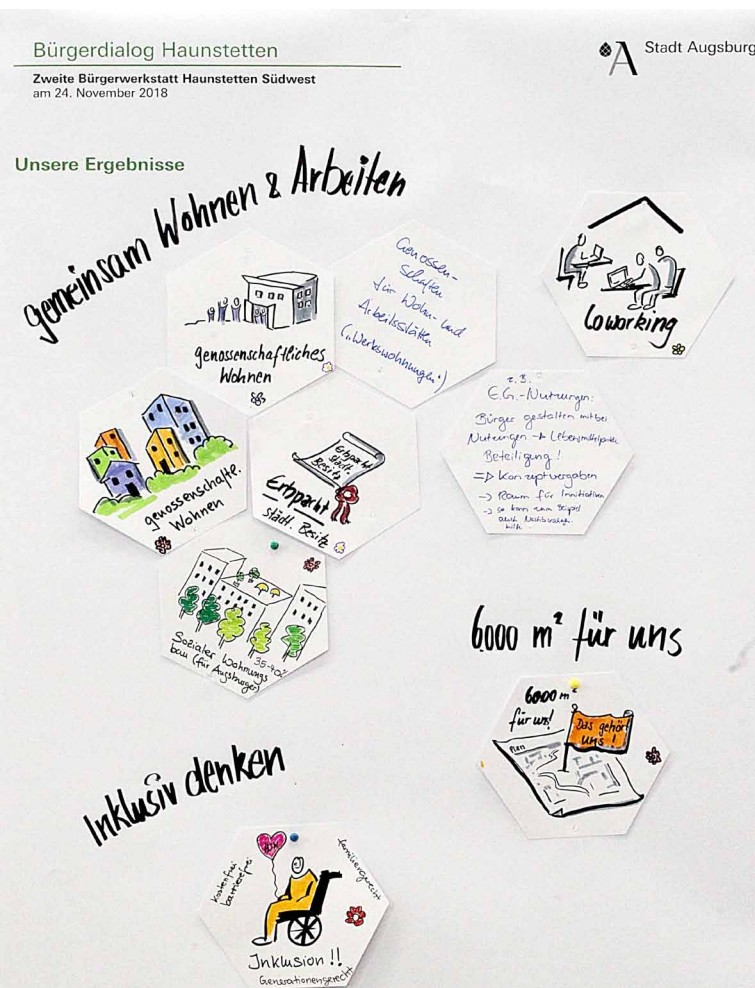 Bürgerdialog Haunstetten
Stadt Augsburg
Zweite Bürgerwerkstatt Haunstetten Südwest
am 24. November 2018
Unsere Ergebnisse
gemeinsam Wohnen & Arbeiten
genossenschaftliches
Wohnen
Genossen-
schaften
für Wohn- und
Arbeitsstätten
("Werkswohnungen")
Coworking
genossenschaftl.
Wohnen
Erbpacht
städt.
Besitz
Erbpacht
städtl. Besitz
z.B.
E.G.-Nutzungen:
Bürger gestalten mit bei
Nutzungen →
Beteiligung!
=> Konzeptvergaben
-> Raum für Innitiativen
-> so kann zum Beipiel
auch Nachbarschafts-
hilfe
Sozialer Wohnungs
bau (für Augsburger)
35-40%
6000 m² für uns
6000 m²
für uns!
Das gehört
uns!
Plan
Inklusiv denken
kostenfrei
barrierefrei
familiengerecht
Inklusion!!
Generationengerecht